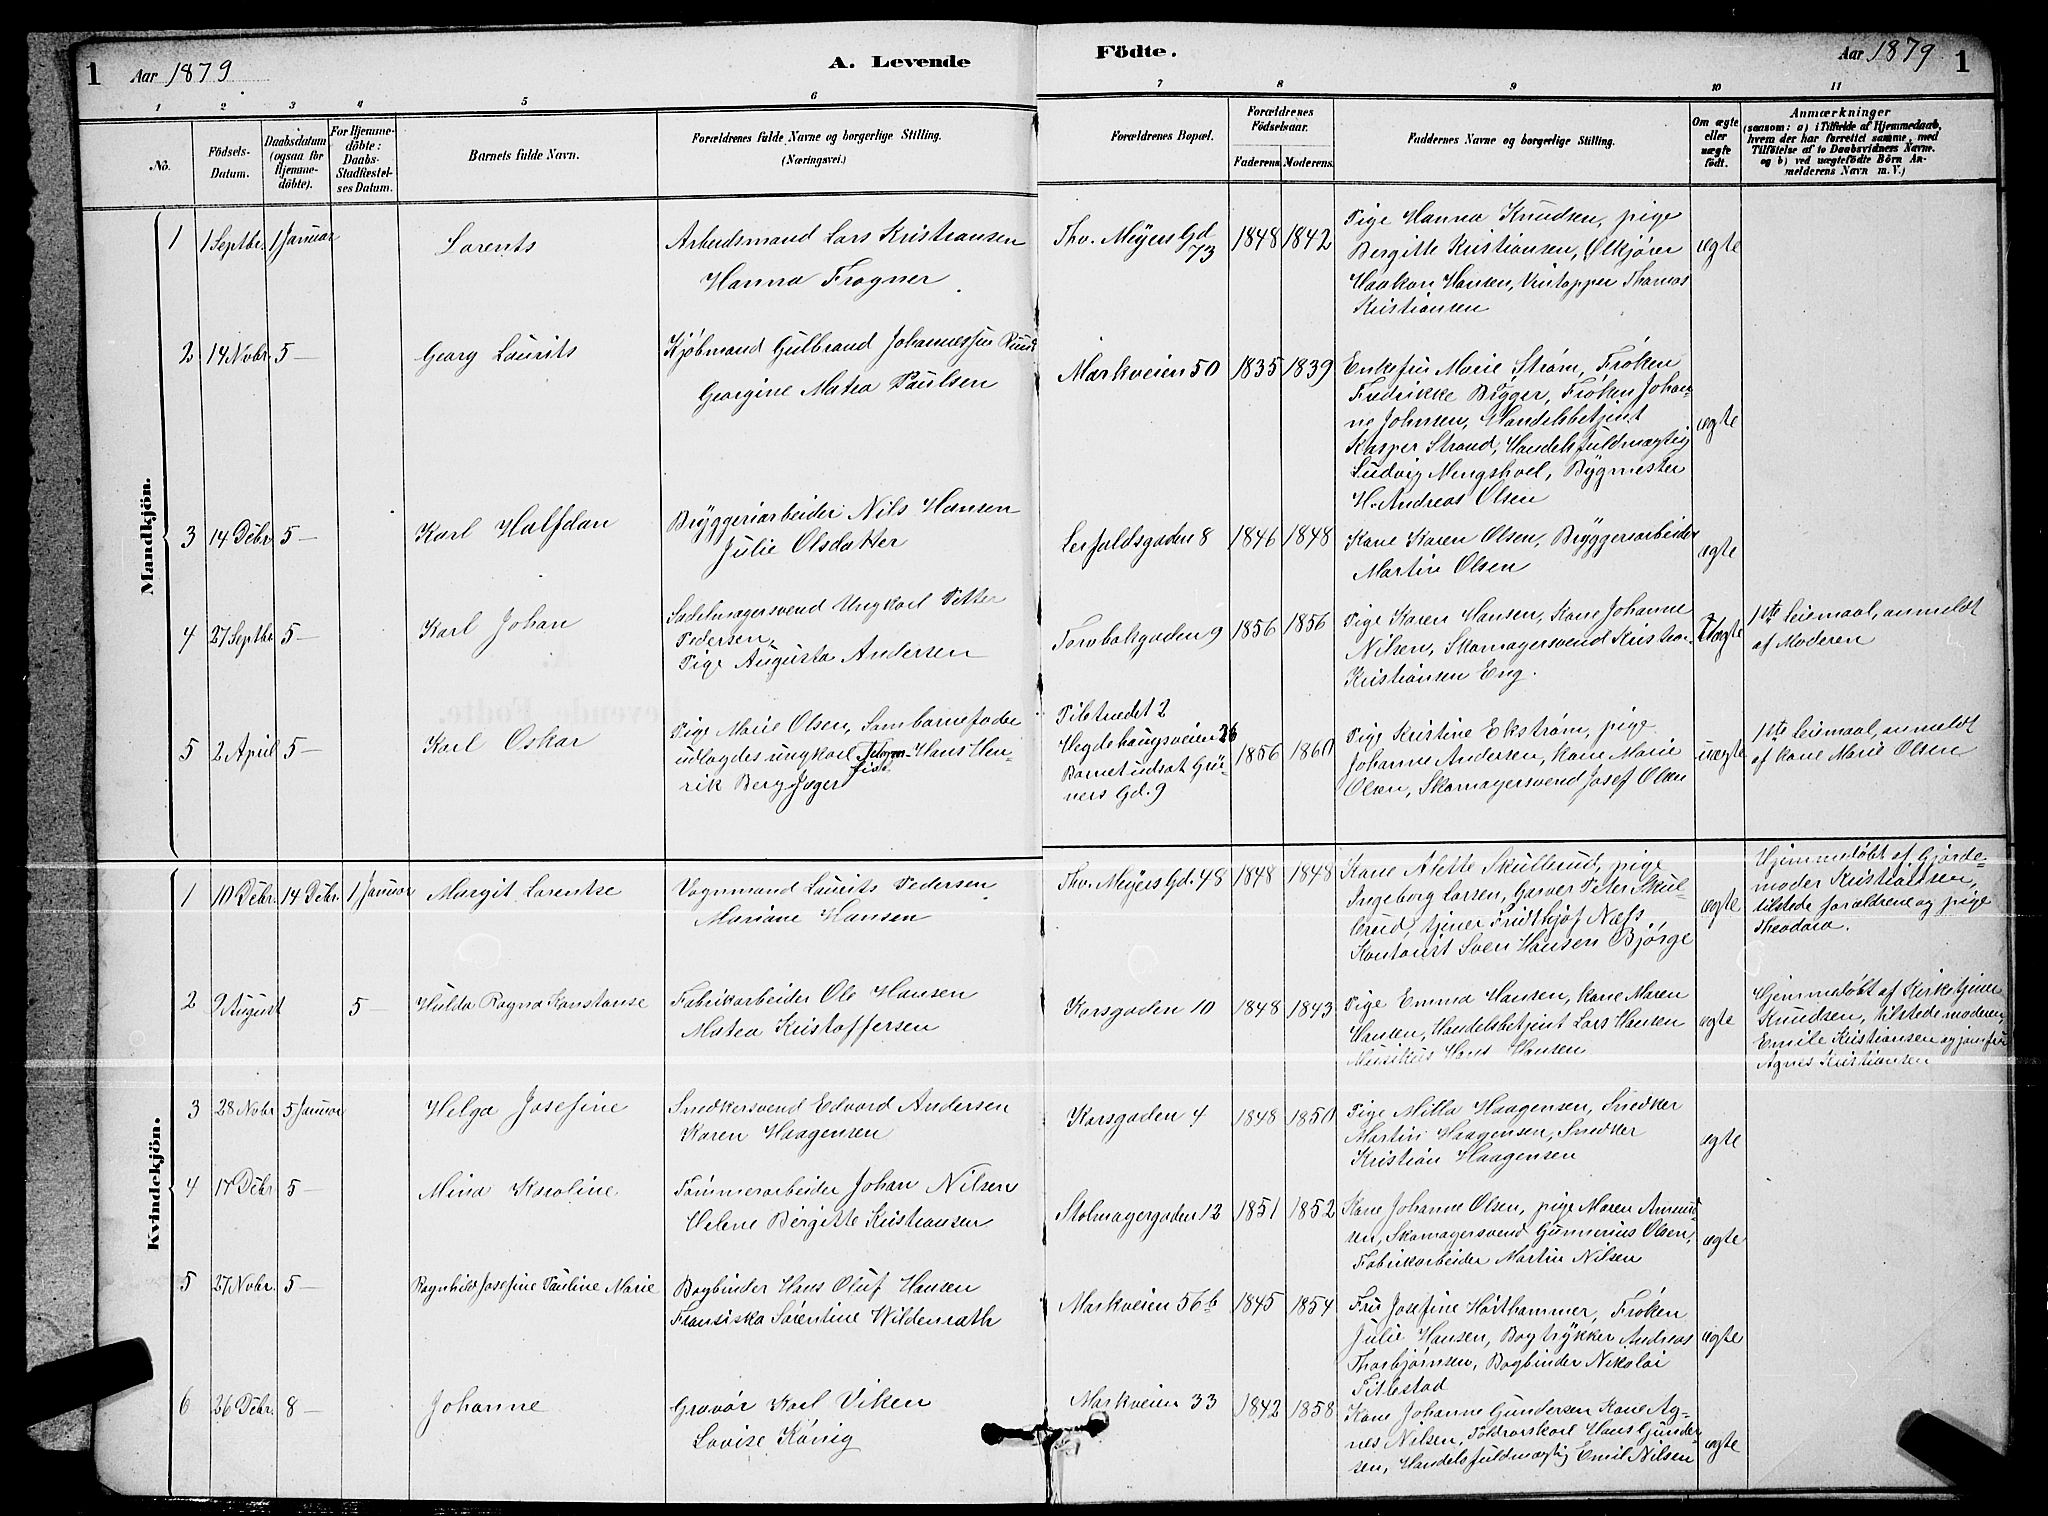 1 Aar 1879 A. Levende Födte. Aar 1879 1
1 2 3 4 5 6 7 8 9 10 11
No.
Födsels-
Datum.
Daabsdatum
(ogsaa for
Hjemme-
döbte).
For Hjemme-
döbte:
Daabs-
Stadfæstel-
ses Datum.
Barnets fulde Navn.
Forældrenes fulde Navne og borgerlige Stilling.
(Næringsvei.)
Forældrenes Bopæl.
Forældrenes
Födselsaar.
Faderens. Moderens.
Faddernes Navne og borgerlige Stilling.
Om ægte
eller
uægte
födt.
Anmærkninger
(saasom: a) i Tilfælde af Hjemmedaab,
hvem der har forrettet samme, med
Tilföielse af to Daabsvidners Navne.
og b) ved uægtefödte Börn An-
melderens Navn m. V.)
Mandkjön.
1 1 Septbr. 1 Januar Lorents
Arbeidsmand Lars Kristiansen
Hanna Frogner
Thv. Meyers Gd
73
1848 1842
Pige Hanna Knudsen, pige
Bergitte Kristiansen, Ølkjører
Haakon Hansen, Vintapper Thomas
Kristiansen
ægte
2 14 Nobr. 5 — Georg Laurits
Kjøbmand Gulbrand Johannessen Ruud
Georgine Matea Paulsen
Markveien 50 1835 1839
Enkefru Marie Strøm, Frøken
Fredrikke Bygger, Frøken Johan-
ne Johnsen, Handelsbetjent
Kasper Strand, Handelsfuldmægtig
Ludvig Mengshoel, Bygmester
H. Andreas Olsen
ægte
3 14 Debr. 5 — Karl Halfdan
Bryggeriarbeider Nils Hansen
Julie Olsdatter
Leirfaldsgaden 8 1846 1848
Kone Karen Olsen, Bryggeriarbeider
Martin Olsen
ægte
4 27 Septbr. 5 — Karl Johan
Sadelmagersvend Ungkarl Petter
Pedersen,
Pige Augusta Andersen
Torvbakgaden 9 1856 1856
Pige Karen Hansen, Kone Johanne
Nilsen, Skomagersvend Kristian
Kristiansen Eng.
Uægte
1ste leiemaal, anmeldt
af Moderen
5 2 April 5 — Karl Oskar
Pige Marie Olsen, Som barnefader
udlagdes ungkarl Hans Hen-
rik Berg Jæger
Pilestrædet 2
Hegdehaugsveien 26
Barnet udsat Grü-
ners Gd. 9
1856 1860
Pige Kristine Ekstrøm, pige
Johanne Andersen, kone Marie
Olsen, Skomagersvend Josef Olsen
uægte
1ste leiemaal, anmeldt
af kone Marie Olsen
Kvindekjön.
1 10 Debr. 14 Debr. 1 Januar Margit Lorentse
Vognmand Laurits Pedersen
Mariane Hansen
Thv. Meyers Gd. 48 1848 1848
Kone Alette Skullerud, pige
Ingeborg Larsen, Garver Peter Skul-
lerud, tjener Fridthjof Næss,
Kontorist Sven Hansen Bjørge
ægte
Hjemmedøbt af Gjorde-
moder Kristiansen,
tilstede forældrene og pige
Theodora.
2 9 August 5 — Hulda Ragna Konstanse
Fabrikarbeider Ole Hansen
Matea Kristoffersen
Korsgaden 10 1848 1843
Pige Emma Hansen, kone Maren
Hansen, Handelsbetjent Lars Hansen
Musikus Hans Hansen
ægte
Hjemmedøbt af Kirketjener
Knudsen, tilstede moderen,
Emile Kristiansen og jomfru
Agnes Kristiansen
3 28 Nobr. 5 Januar Helga Josefine
Snedkersvend Edvard Andersen
Karen Haagensen
Korsgaden 4 1848 1850
Pige Milla Haagensen, Snedker
Martin Haagensen, Snedker
Kristian Haagensen
ægte
4 17 Debr 5 — Mina Karoline
Tømmerarbeider Johan Nilsen
Helene Birgitte Kristiansen
Stolmagergaden 12 1851 1852
Kone Johanne Olsen, pige Maren Amund-
sen, Skomagersvend Gunnerius Olsen,
Fabrikarbeider Martin Nilsen
ægte
5 27 Nobr. 5 — Ragnhild Josefine Pauline Marie
Bogbinder Hans Oluf Hansen
Fransiska Sørentine Wildenrath
Markveien 56 b 1845 1854
Fru Josefine Harthammer, Frøken
Julie Hansen, Bogtrykker Andreas
Thorbjørnsen, Bogbinder Nikolai
Titlestad
ægte
6 26 Debr. 8 — Johanne
Gravør Karl Viken
Lovise König
Markveien 33 1842 1858
Kone Johanne Gundersen Kone Ag-
nes Nilsen, Toldrorskarl Hans Gunder-
sen, Handelsfuldmægtig Emil Nilsen
ægte